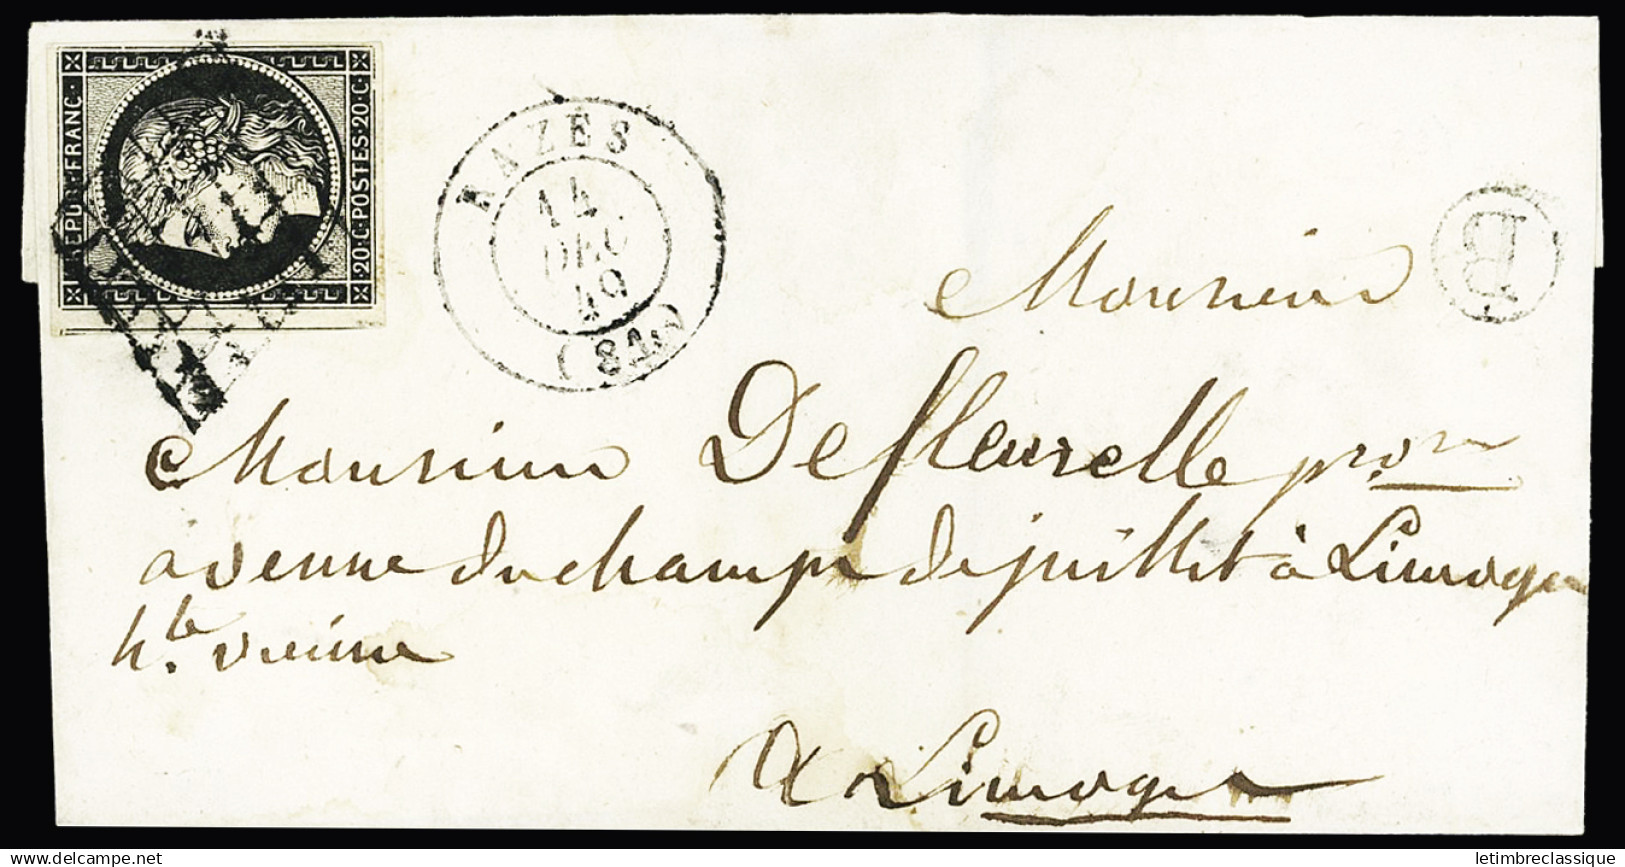 REPUB·FRANC·
20·C·POSTES·20·C·
RAZÈS
14
DEC
49
(84)
B
Monsieur
Monsieur Defleurelle pron
avenue du champ de juillet à Limoges
hte vienne
à Limoges
delcampe.net
letimbreclassique